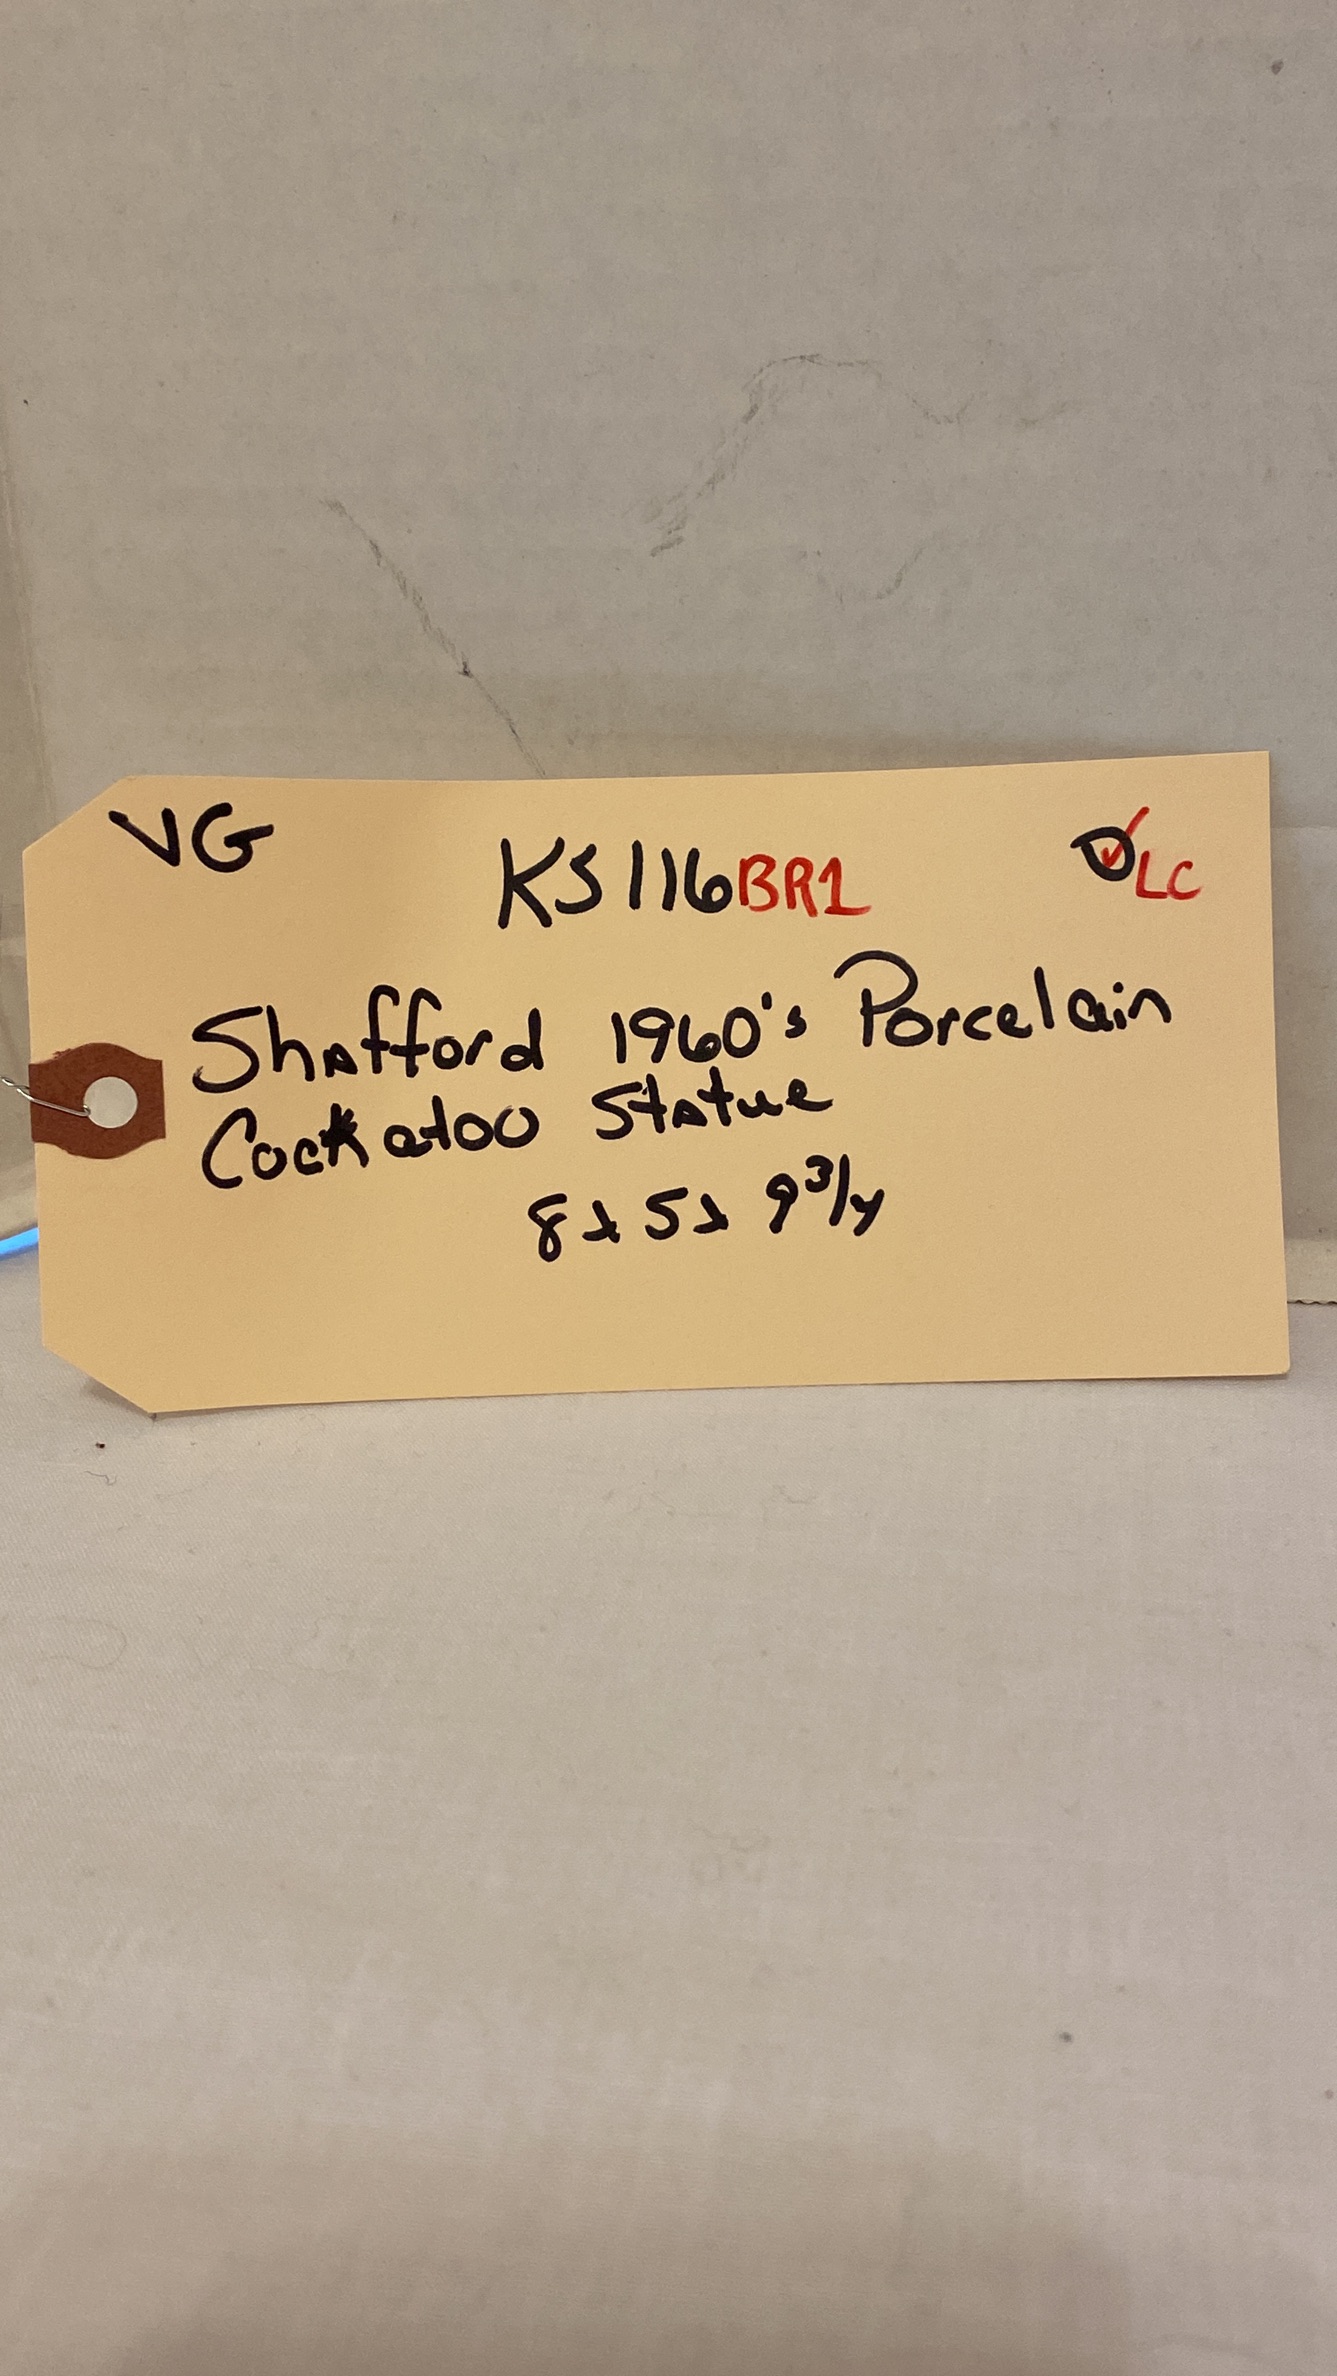 VG
KS116BR1
LC
Shafford 1960's Porcelain
Cockatoo Statue
8 x 5 x 9 3/4